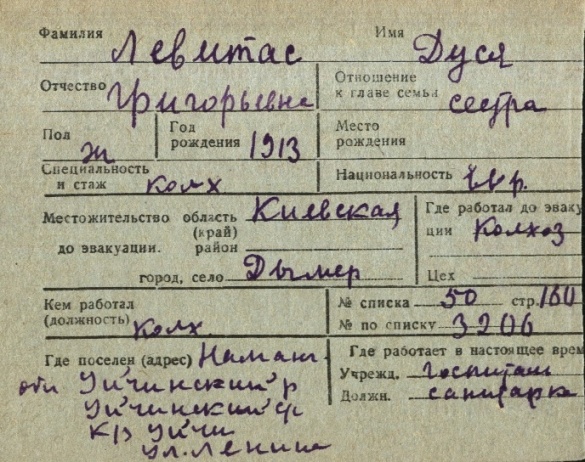 Фамилия Левитас Имя Дуся
Отчество Григорьевна Отношение к главе семьи сестра
Пол ж Год рождения 1913 Место рождения
Специальность и стаж колх Национальность евр.
Местожительство область (край) Киевская Где работал до эваку
до эвакуации. район ции Колхоз
город, село Дымер Цех
Кем работал № списка 50 стр. 160
(должность) колх. № по списку 3206
Где поселен (адрес) Наманг. Где работает в настоящее врем
обл Уйчинский р Учрежд. Госпиталь
Уйчинский Должн. санитарка
к/з Уйчи
ул. Ленина